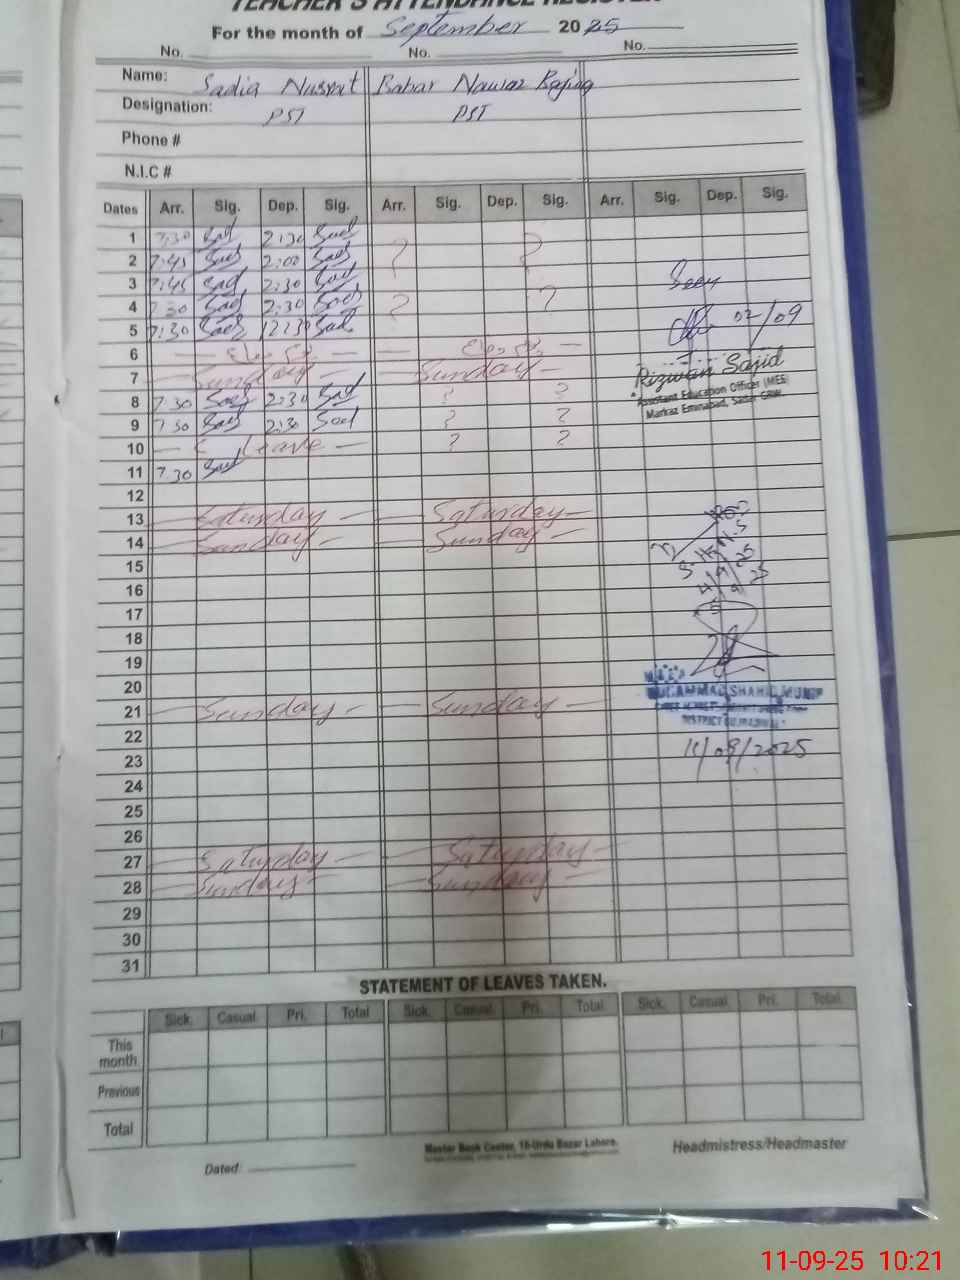 TEACHER'S ATTENDANCE REGISTER
For the month of September 2025
No. No. No.
Name: Sadia Nusrat Babar Nawaz
Designation: PST PST
Phone #
N.I.C #
Dates Arr. Sig. Dep. Sig. Arr. Sig. Dep. Sig. Arr. Sig. Dep. Sig.
1 7:30 Sad 2:30 Sad ? ?
2 7:45 Sad 2:00 Sad
3 7:45 Sad 2:30 Sad
4 7:30 Sad 2:30 Sad ? ?
5 7:30 Sad 12:30 Sad
02/09
6
7 Sunday Sunday
Rizwan Sajid
Assistant Education Officer (MEE)
Markaz Eminabad, Sadar GRW.
8 7:30 Sad 2:30 Sad ? ?
9 7:30 Sad 2:30 Sad ? ?
10 Leave ? ?
11 7:30 Sad
12
13 Saturday Saturday
14 Sunday Sunday
15
16
17
18
19
20
21 Sunday Sunday
MUHAMMAD SHAHID
22
23 11/09/2025
24
25
26
27 Saturday Saturday
28 Sunday Sunday
29
30
31
STATEMENT OF LEAVES TAKEN.
Sick. Casual Pri. Total Sick. Casual Pri. Total Sick. Casual Pri. Total
This month
Previous
Total
Master Book Center, 18-Urdu Bazar Lahore.
Headmistress/Headmaster
Dated:
11-09-25 10:21